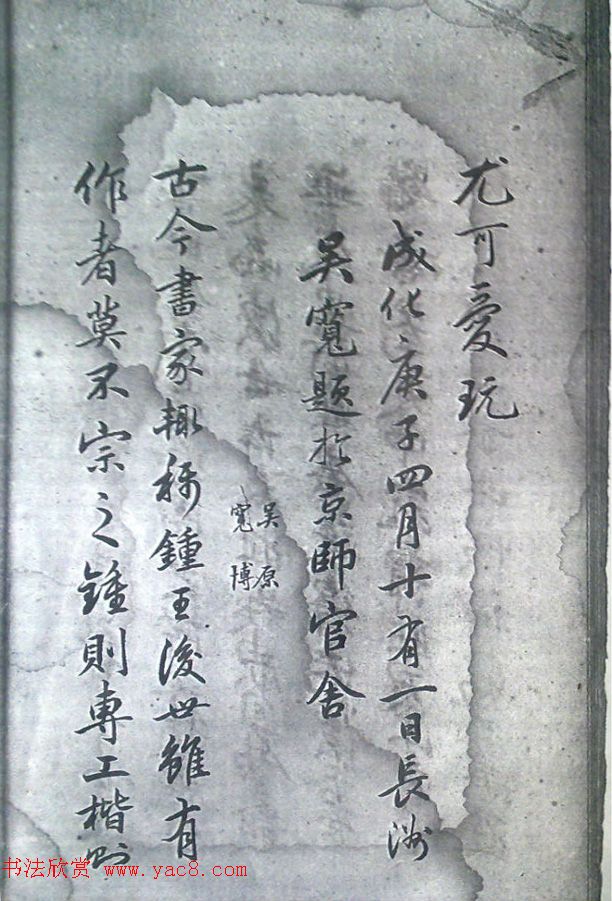 尤可愛玩
成化庚子四月十有一日長洲
吴寬題於京師官舍
吴原
寬博
古今書家輒稱鍾王後世雖有
作者莫不宗之鍾則專工楷
书法欣赏 www.yac8.com